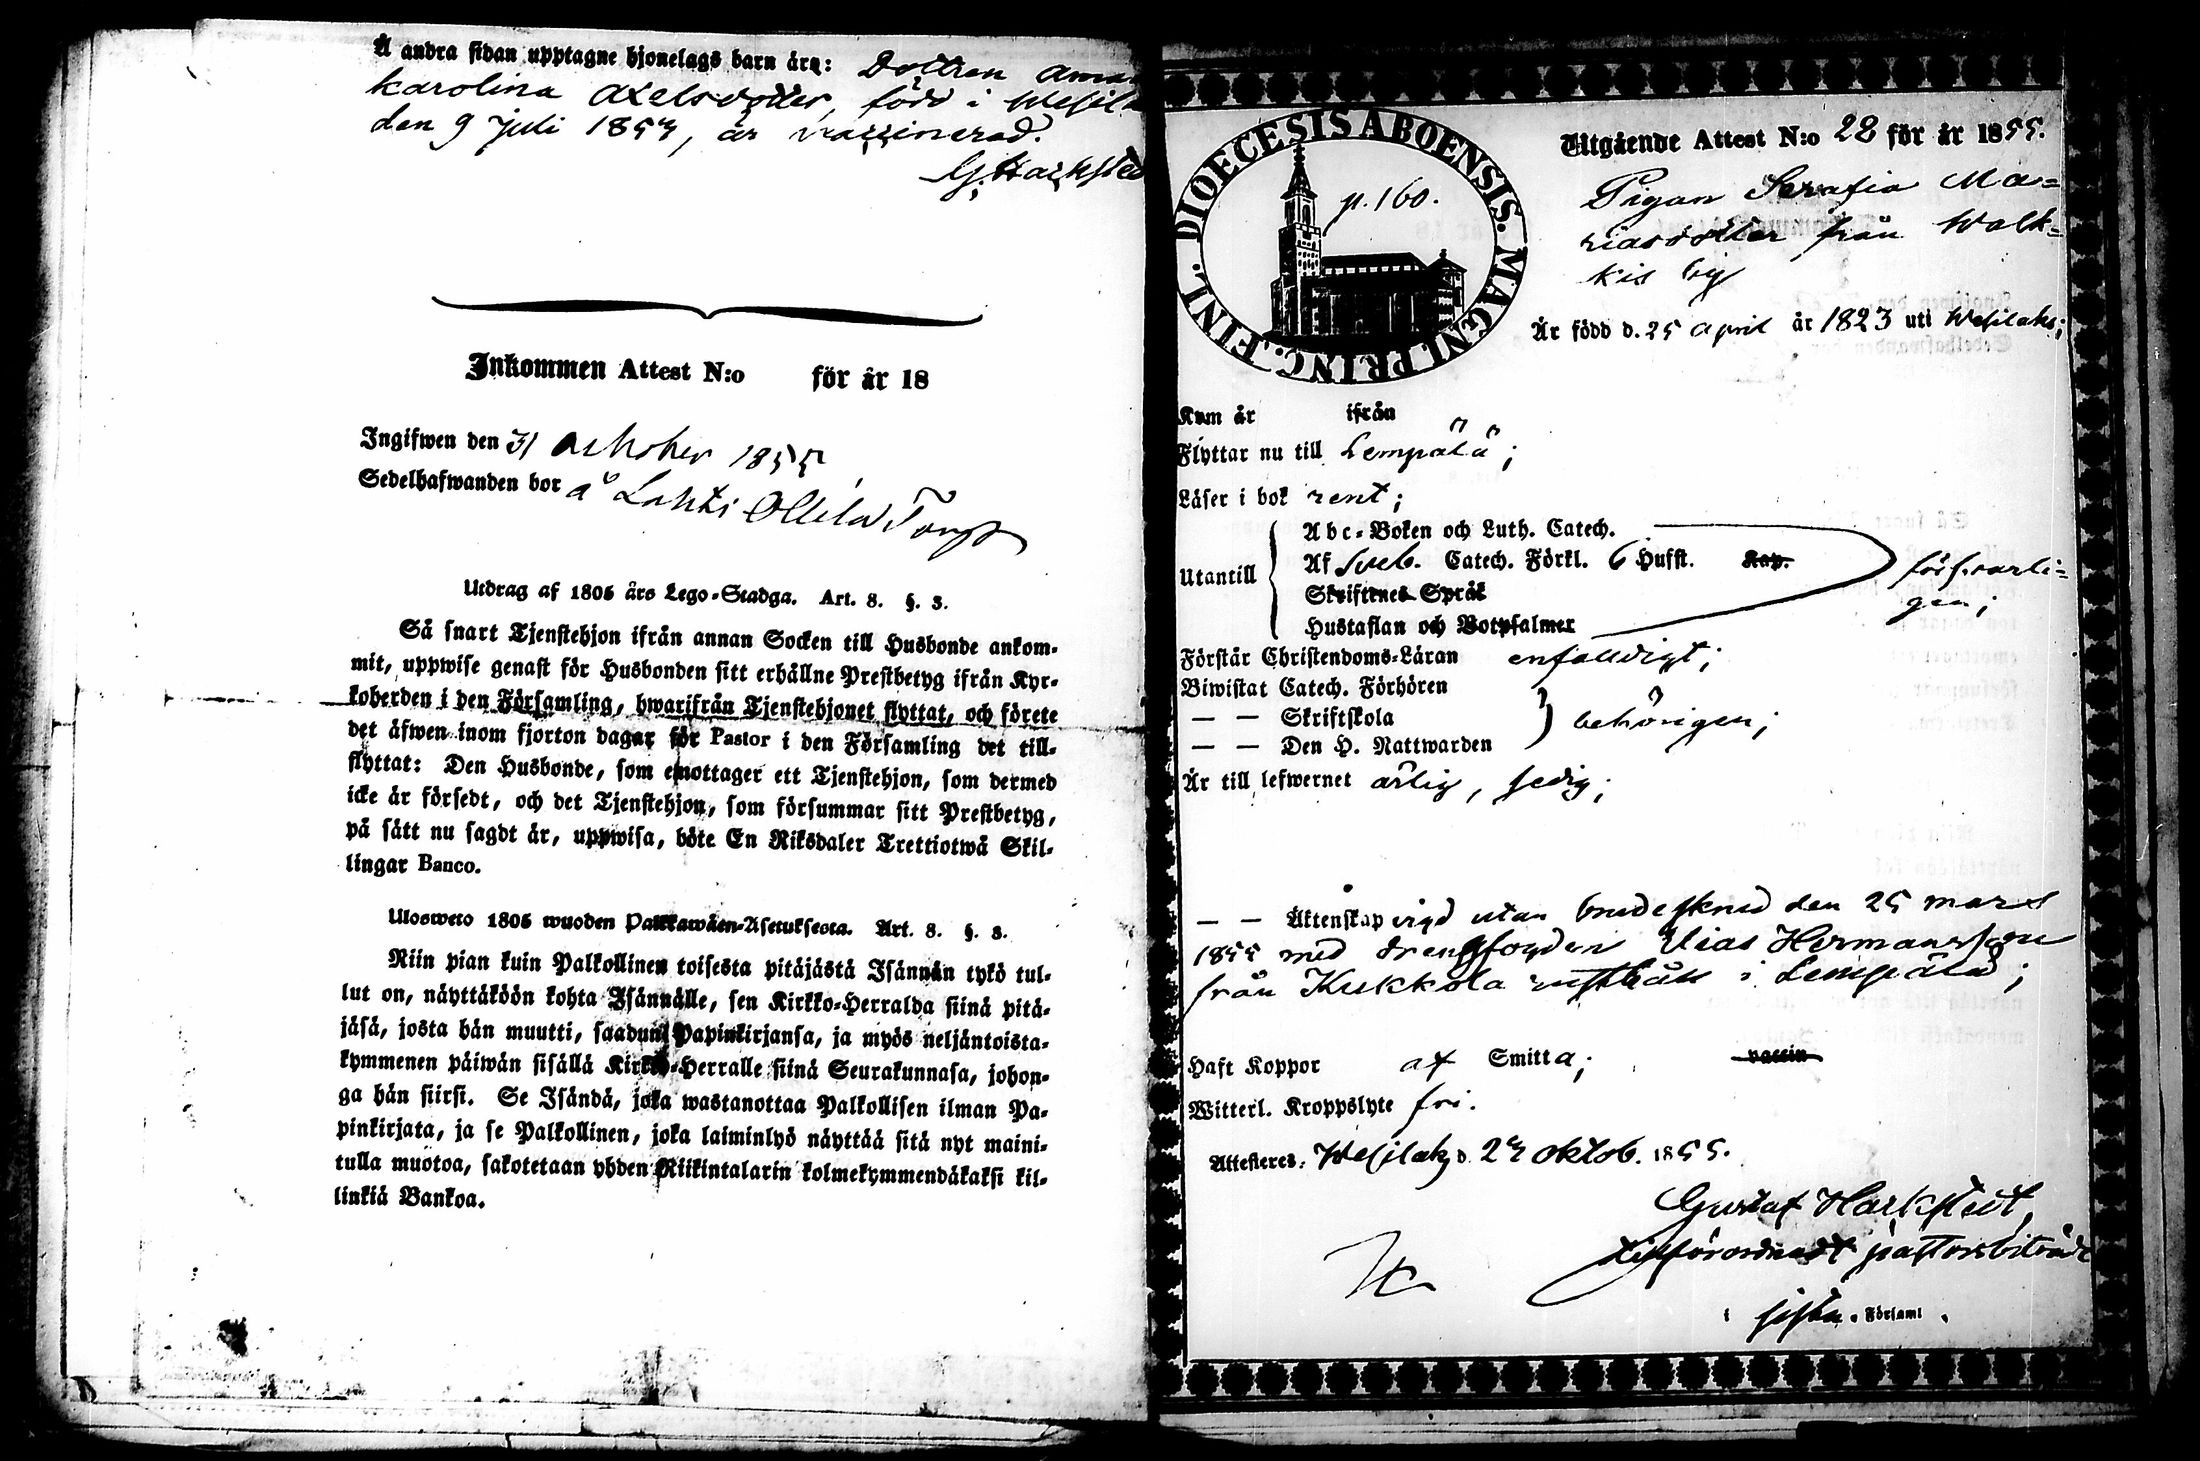 Å andra sidan upptagne hjonelags barn äro: Dottren Aman
Karolina Axelsdotter, född i Wesila
den 9 Juli 1854, är vaccinerad.
G. Harksted
Inkommen Attest N:o för år 18
Ingifwen den 31 October 1855
Sedelhafwanden bor å Lahti Ollila Torp
Utdrag af 1805 års Lego-Stadga. Art. 8. §. 3.
Så snart Tjenstehjon ifrån annan Socken till Husbonde ankom-
mit, uppwise genast för Husbonden sitt erhållne Prestbetyg ifrån Kyr-
koherden i den Församling, hwarifrån Tjenstehjonet flyttat, och förete
det äfwen inom fjorton dagar för Pastor i den Församling det till-
flyttat: Den Husbonde, som emottager ett Tjenstehjon, som dermed
icke är försedt, och det Tjenstehjon, som försummar sitt Prestbetyg,
på sätt nu sagdt är, uppwisa, böte En Riksdaler Trettiotwå Skil-
lingar Banco.
Ulosweto 1805 wuoden Palkkawäen-Asetuksesta. Art. 8. §. 3.
Niin pian kuin Palkollinen toisesta pitäjästä Isännän tykö tul-
lut on, näyttäköön kohta Isännälle, sen Kirkko-Herralda siinä pitä-
jäsä, josta hän muutti, saadun Papinkirjansa, ja myös neljäntoista-
kymmenen päiwän sisällä Kirkko-Herralle siinä Seurakunnasa, johon-
ga hän siirsi. Se Isändä, joka wastanottaa Palkollisen ilman Pa-
pinkirjata, ja se Palkollinen, joka laiminlyö näyttää sitä nyt maini-
tulla muotoa, sakotetaan yhden Riikintalarin kolmekymmendäkaksi kil-
linkiä Bankoa.
DIOECESIS ABOENSIS. MAGNI PRINC. FINL.
p. 160.
Utgående Attest N:o 28 för år 1855.
Pigan Serafia Ma-
riasdotter från Walk-
kis by
Är född d. 25 April år 1823 uti Wesilaks;
Kom år ifrån
Flyttar nu till Lempälä;
Läser i bok rent;
Utantill
Abc-Boken och Luth. Catech.
Af Sveb. Catech. Förkl. 6 Hufst. Kap.
Skriftenes Språk
Hustaflan och Botpsalmer
försvarli-
gen;
Förstår Christendoms-Läran enfaldigt;
Biwistat Catech. Förhören
— — Skriftskola
— — Den H. Nattwarden
behörigen;
Är till lefwernet ärlig, sedig;
— — Äktenskap vigd utan brudeskrud den 25 mars
1855 med drengfogden Elias Hermansson
från Kukkola rusthåll i Lempälä;
Haft Koppor af Smitta; vaccin
Witterl. Kroppslyte fri.
Attesteres, Wesilaks d. 24 oktob. 1855.
Gustaf Harkstedt,
tillförordnadt pastorsbiträde
i sistn. Församl.